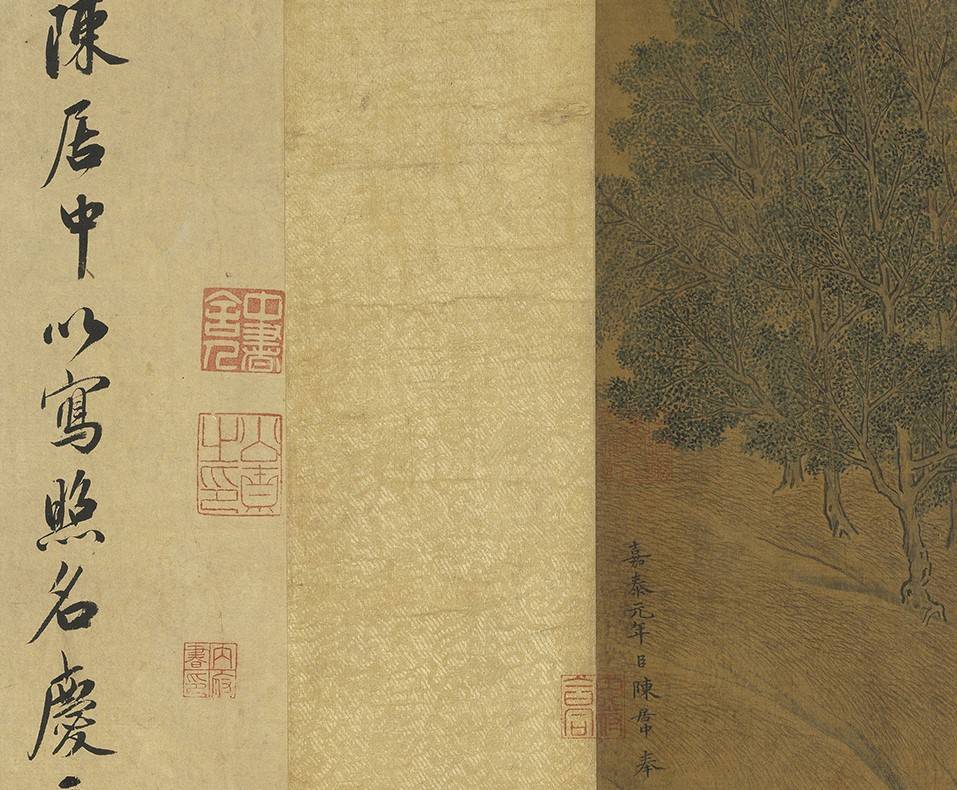 嘉泰元年臣陳居中奉
中書舍人
內府書印
陳居中以寫照名慶